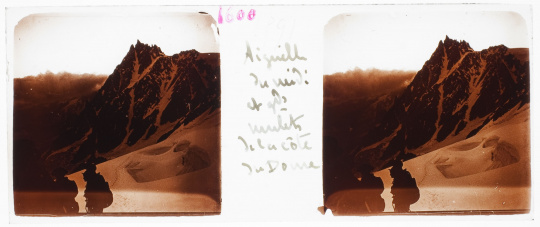 6600
Aiguille
du midi
et gds
mulets
de la côté
du Dome